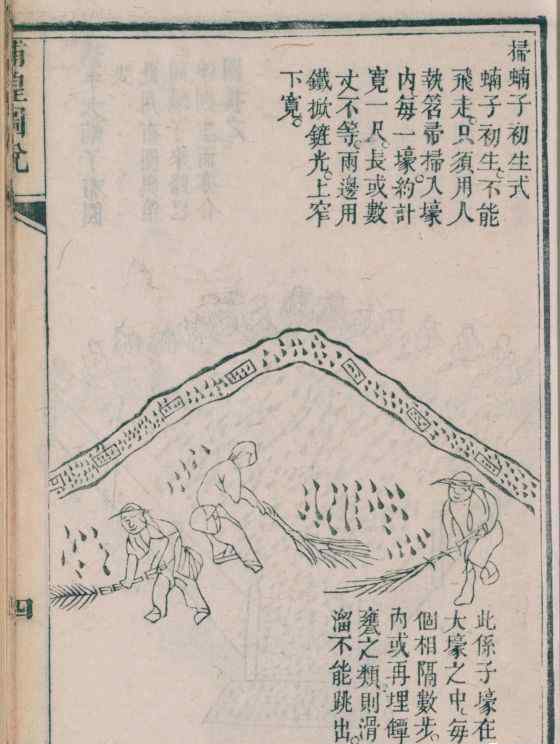 掃蝻子初生式
蝻子初生不能
飛走。只須用人
執笤帚掃入壕
内。每一壕約計
寬一尺。長或數
丈不等。兩邊用
鐵掀鏟光。上窄
下寬。
此係子壕在
大壕之中。每
個相隔數步。
内或再埋罈
甕之類。則滑
溜不能跳出。
捕蝗圖說
四